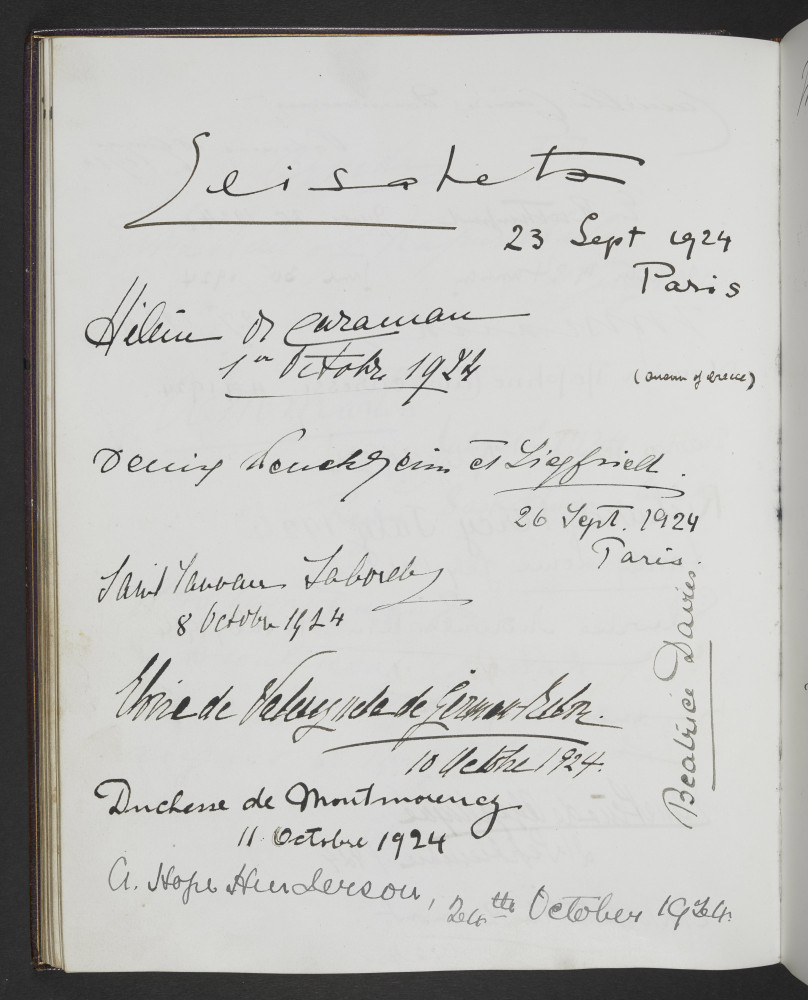 Elisabeta
23 Sept 1924
Paris
Hélène de Caraman
1er Octobre 1924
(Queen of Greece)
et Siegfried.
26 Sept. 1924
Paris.
Saint Sauveur
8 Octobre 1924
de de
10 Octobre 1924.
Duchesse de Montmorency
11 Octobre 1924
A. Hope Henderson, 24th October 1924.
Beatrice Davies